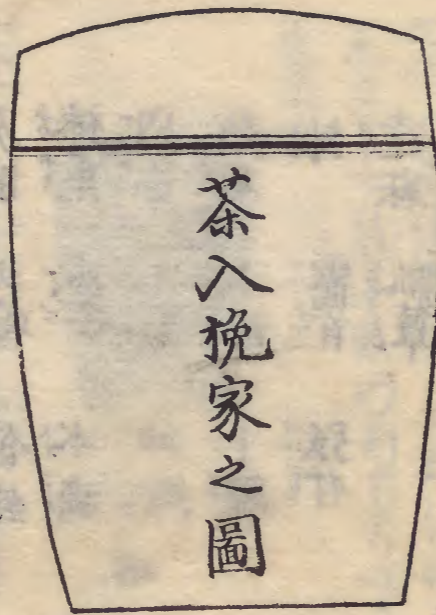 茶入挽家之圖